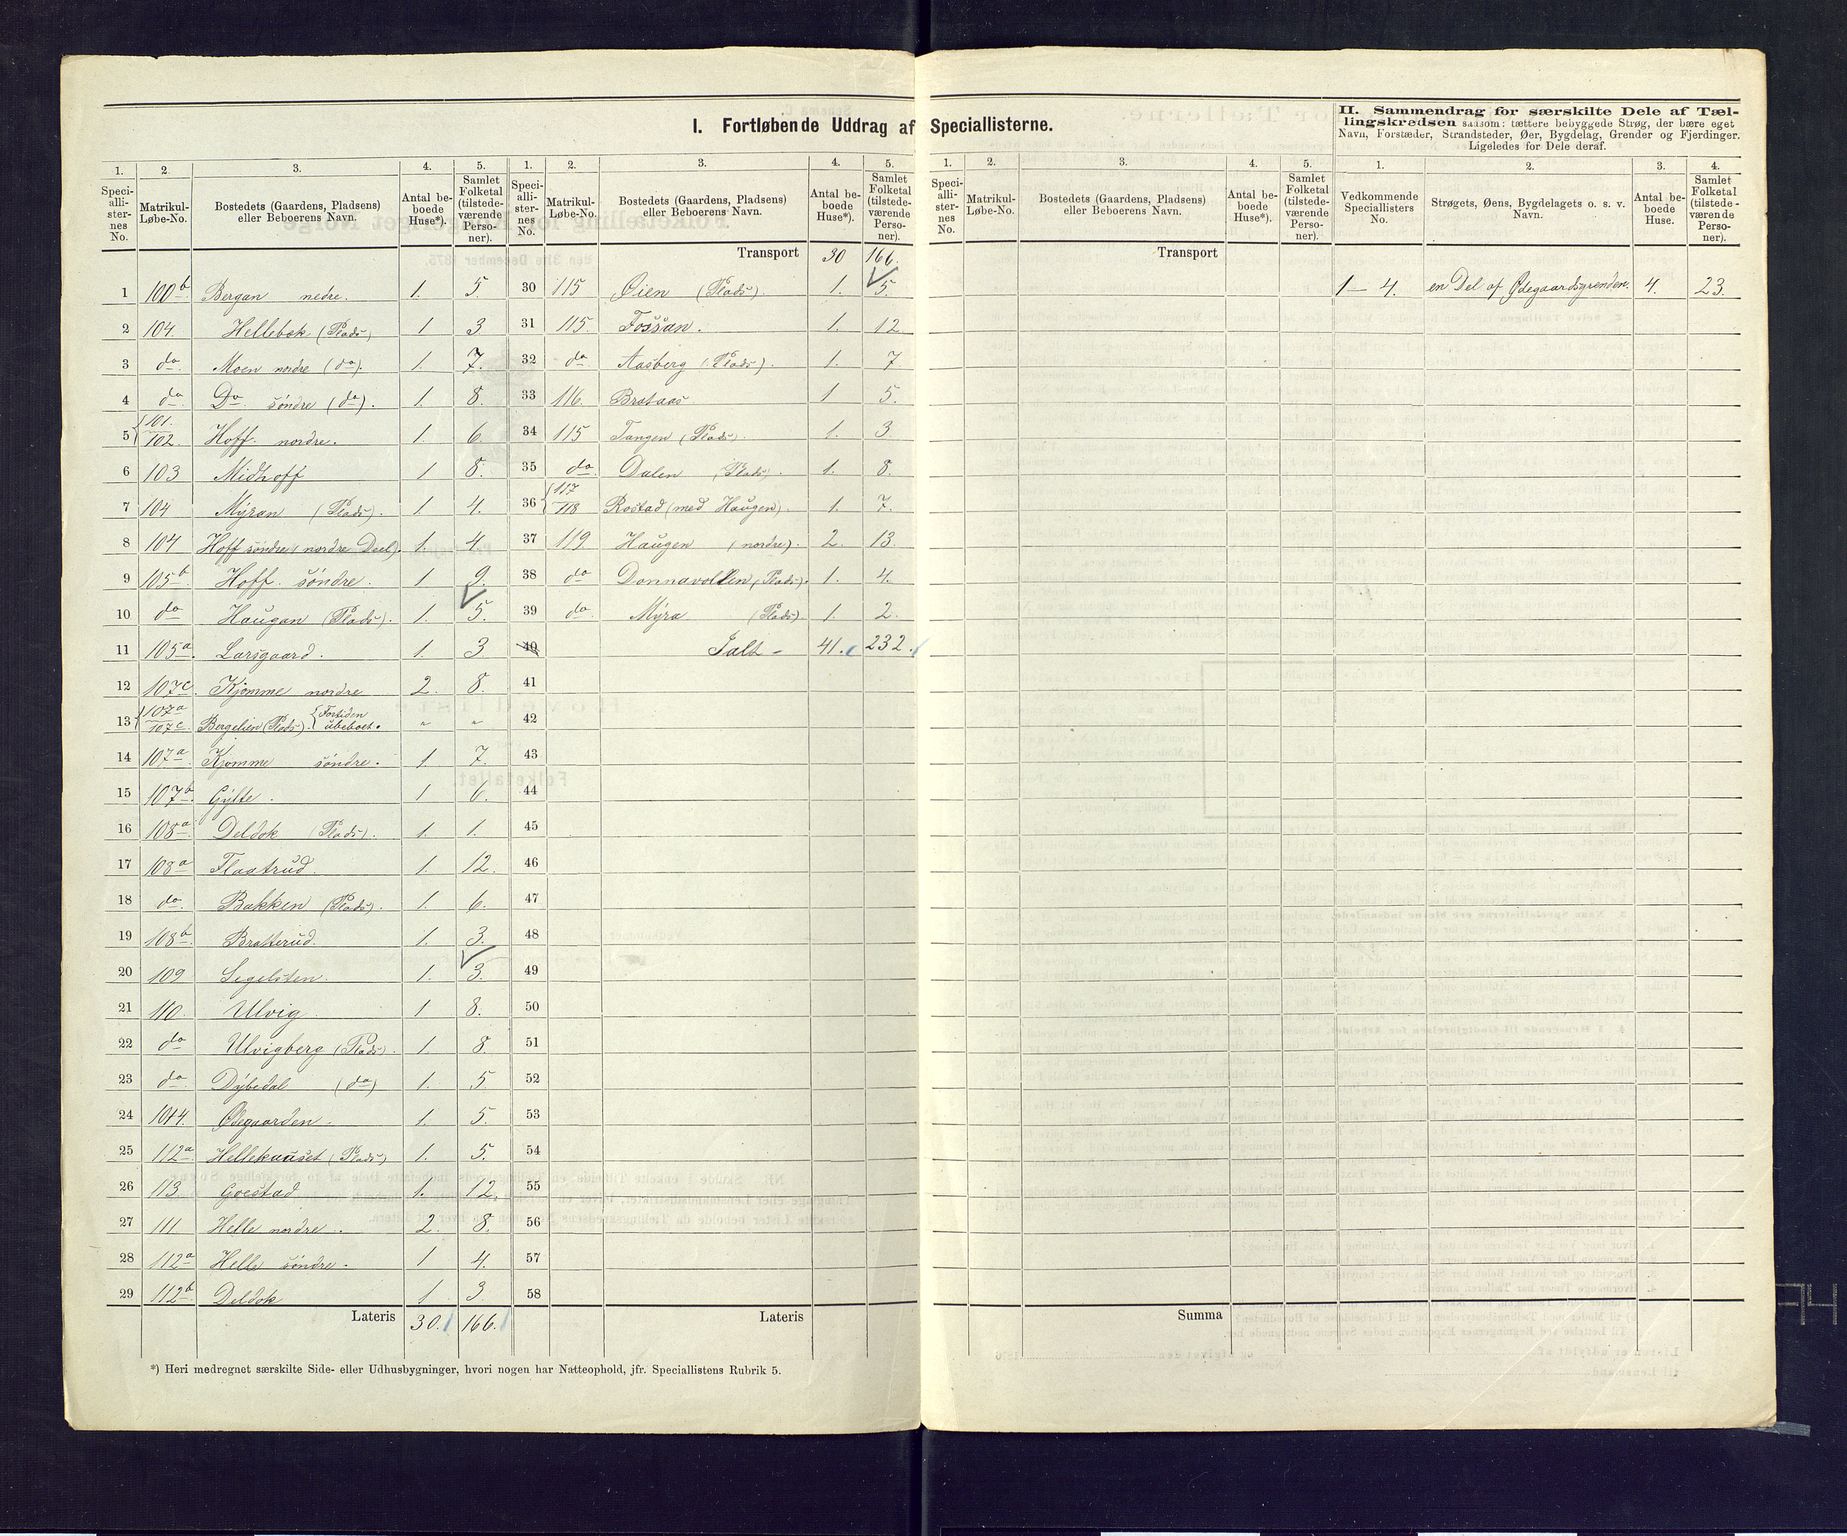 I. Fortløbende Uddrag af Speciallisterne.
II. Sammendrag for særskilte Dele af Tællingskredsen saasom: tættere bebyggede Strøg, der bære eget Navn, Forstæder, Strandsteder, Øer, Bygdelag, Grender og Fjerdinger. Ligeledes for Dele deraf.
1. 2. 3. 4. 5. 1. 2. 3. 4. 5. 1. 2. 3. 4. 5. 1. 2. 3. 4.
Speciallisternes No. Matrikul-Løbe-No. Bostedets (Gaardens, Pladsens) eller Beboerens Navn. Antal beboede Huse*). Samlet Folketal (tilstedeværende Personer).
Speciallisternes No. Matrikul-Løbe-No. Bostedets (Gaardens, Pladsens) eller Beboerens Navn. Antal beboede Huse*). Samlet Folketal (tilstedeværende Personer).
Speciallisternes No. Matrikul-Løbe-No. Bostedets (Gaardens, Pladsens) eller Beboerens Navn. Antal beboede Huse*). Samlet Folketal (tilstedeværende Personer).
Vedkommende Speciallisters No. Strøgets, Øens, Bygdelagets o. s. v. Navn. Antal beboede Huse. Samlet Folketal (tilstedeværende Personer).
1 100b Bergan nedre. 1. 5.
2 104 Hellebak (Plads) 1 3
3 do Moen nordre (do). 1. 7.
4 do Do søndre (do). 1. 8.
5 {101. 102. Hoff nordre. 1. 6.
6 103 Midhoff 1 8.
7 104 Myran (Plads). 1 4.
8 104 Hoff søndre (nordre Deel). 1. 4.
9 105b Hoff søndre. 1 9.
10 do Haugan (Plads). 1. 5.
11 105a Larsgaard. 1. 3
12 107c Kjømme nordre 2. 8.
13 {107a 107c Bergelien (Plads). {Fortiden ubeboet. " "
14 107a Kjømme søndre. 1. 7.
15 107b Gylte. 1 6.
16 108a Deldok (Plads). 1. 1.
17 108a Flastrud. 1 12.
18 do Bakken (Plads). 1. 6.
19 108b Bratterud. 1. 3.
20 109 Segelsten. 1. 3.
21 110. Ulvig. 1 8.
22 do Ulvigberg (Plads). 1. 8.
23 do Dybedal (do) 1. 5
24 Ødegaarden. 1. 5.
25 112a Hellehauset (Plads) 1. 5.
26 113. Goestad 1. 12.
27 111 Helle nordre. 2. 8.
28 112a Helle søndre. 1 4.
29 112b Deldok 1 3
Lateris 30. 166.
Transport 30 166.
30 115 Øien (Plads). 1. 5.
31 115. Fossan. 1. 12.
32 do Aasberg (Plads). 1. 7.
33 116. Brataas 1 5.
34 115 Tangen (Plads). 1. 3
35 do Dalen (Plads). 1. 8.
36 {117 118 Rostad (med Haugen). 1. 7.
37 119 Haugen (nordre). 2. 13.
38 do Donnavollen (Plads). 1. 4.
39 do Myra (Plads). 1. 2.
40 Ialt - 41. 232.
41
42
43
44
45
46
47
48
49
50
51
52
53
54
55
56
57
58
Lateris
Transport
Summa
1 – 4. en Del af Ødegaardsgrenden. 4. 23.
*) Heri medregnet særskilte Side- eller Udhusbygninger, hvori nogen har Natteophold, jfr. Speciallistens Rubrik 5.